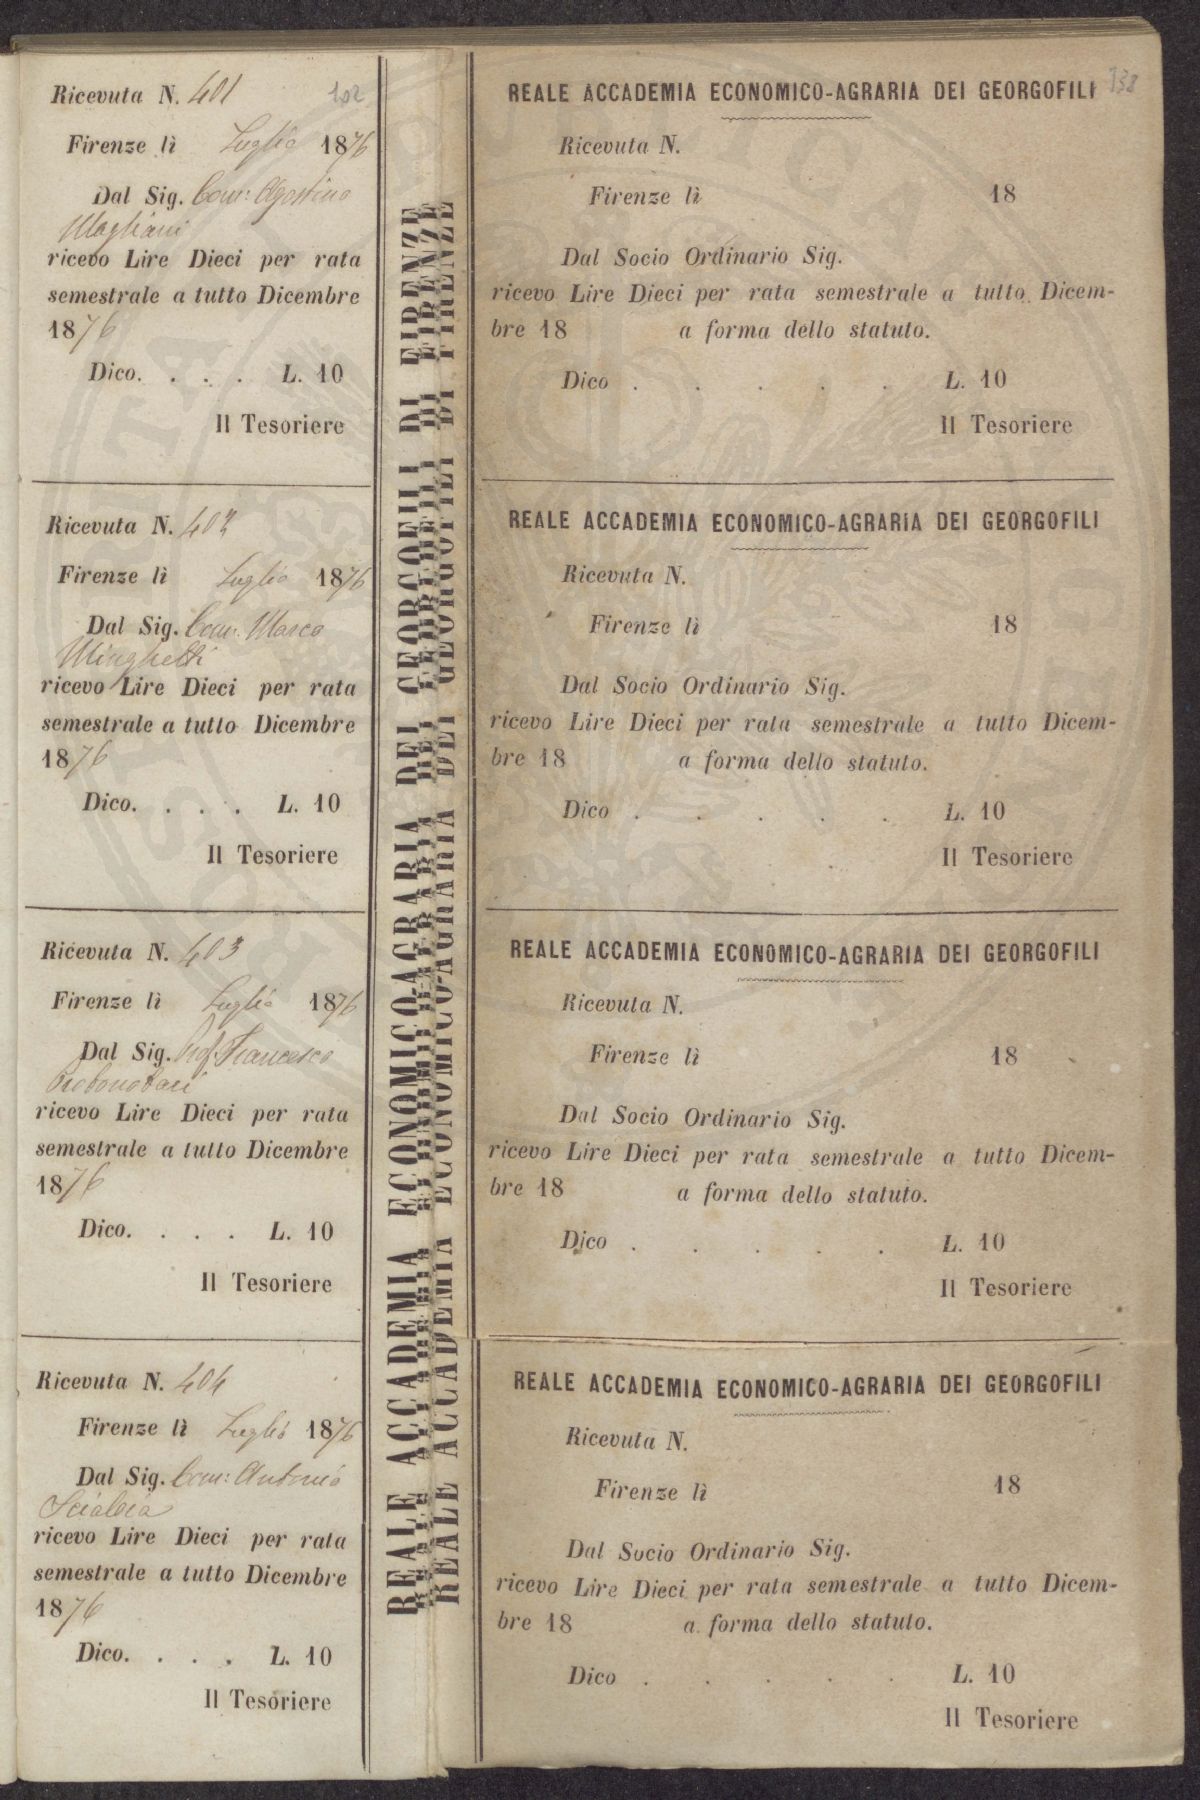 Ricevuta N. 401
102
Firenze lì Luglio 1876
Dal Sig. Com: Agostino
Magliani
ricevo Lire Dieci per rata
semestrale a tutto Dicembre
1876
Dico. . . . L. 10
Il Tesoriere
Ricevuta N. 402
Firenze lì Luglio 1876
Dal Sig. Com: Marco
Minghetti
ricevo Lire Dieci per rata
semestrale a tutto Dicembre
1876
Dico. . . . L. 10
Il Tesoriere
Ricevuta N. 403
Firenze lì Luglio 1876
Dal Sig. Prof. Francesco
Protonotari
ricevo Lire Dieci per rata
semestrale a tutto Dicembre
1876
Dico. . . . L. 10
Il Tesoriere
Ricevuta N. 404
Firenze lì Luglio 1876
Dal Sig. Com: Antonio
Scialoia
ricevo Lire Dieci per rata
semestrale a tutto Dicembre
1876
Dico. . . . L. 10
Il Tesoriere
REALE ACCADEMIA ECONOMICO-AGRARIA DEI GEORGOFILI DI FIRENZE
REALE ACCADEMIA ECONOMICO-AGRARIA DEI GEORGOFILI DI FIRENZE
138
REALE ACCADEMIA ECONOMICO-AGRARIA DEI GEORGOFILI
Ricevuta N.
Firenze lì 18
Dal Socio Ordinario Sig.
ricevo Lire Dieci per rata semestrale a tutto Dicem-
bre 18 a forma dello statuto.
Dico . . . . . L. 10
Il Tesoriere
REALE ACCADEMIA ECONOMICO-AGRARIA DEI GEORGOFILI
Ricevuta N.
Firenze lì 18
Dal Socio Ordinario Sig.
ricevo Lire Dieci per rata semestrale a tutto Dicem-
bre 18 a forma dello statuto.
Dico . . . . . L. 10
Il Tesoriere
REALE ACCADEMIA ECONOMICO-AGRARIA DEI GEORGOFILI
Ricevuta N.
Firenze lì 18
Dal Socio Ordinario Sig.
ricevo Lire Dieci per rata semestrale a tutto Dicem-
bre 18 a forma dello statuto.
Dico . . . . . L. 10
Il Tesoriere
REALE ACCADEMIA ECONOMICO-AGRARIA DEI GEORGOFILI
Ricevuta N.
Firenze lì 18
Dal Socio Ordinario Sig.
ricevo Lire Dieci per rata semestrale a tutto Dicem-
bre 18 a forma dello statuto.
Dico . . . . . L. 10
Il Tesoriere